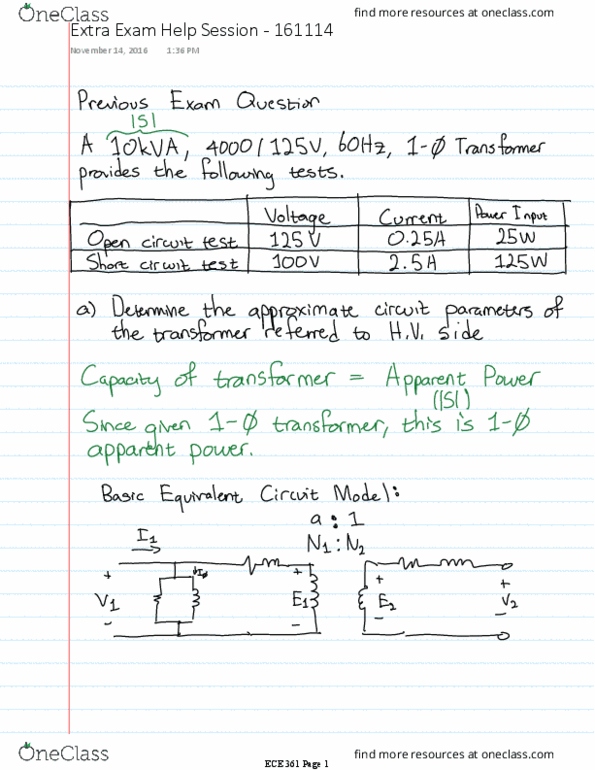 OneClass
find more resources at oneclass.com
Extra Exam Help Session - 161114
November 14, 2016 1:36 PM
Previous Exam Question
|S|
A 10kVA, 4000/125V, 60Hz, 1-Ø Transformer
provides the following tests.
Voltage Current Power Input
Open circuit test 125V 0.25A 25W
Short circuit test 100V 2.5A 125W
a) Determine the approximate circuit parameters of
the transformer referred to H.V. side
Capacity of transformer = Apparent Power
(|S|)
Since given 1-Ø transformer, this is 1-Ø
apparent power.
Basic Equivalent Circuit Model:
a : 1
I1 N1 : N2
+ Iø + + +
V1 E1 E2 V2
- - - -
OneClass
ECE361 Page 1
find more resources at oneclass.com